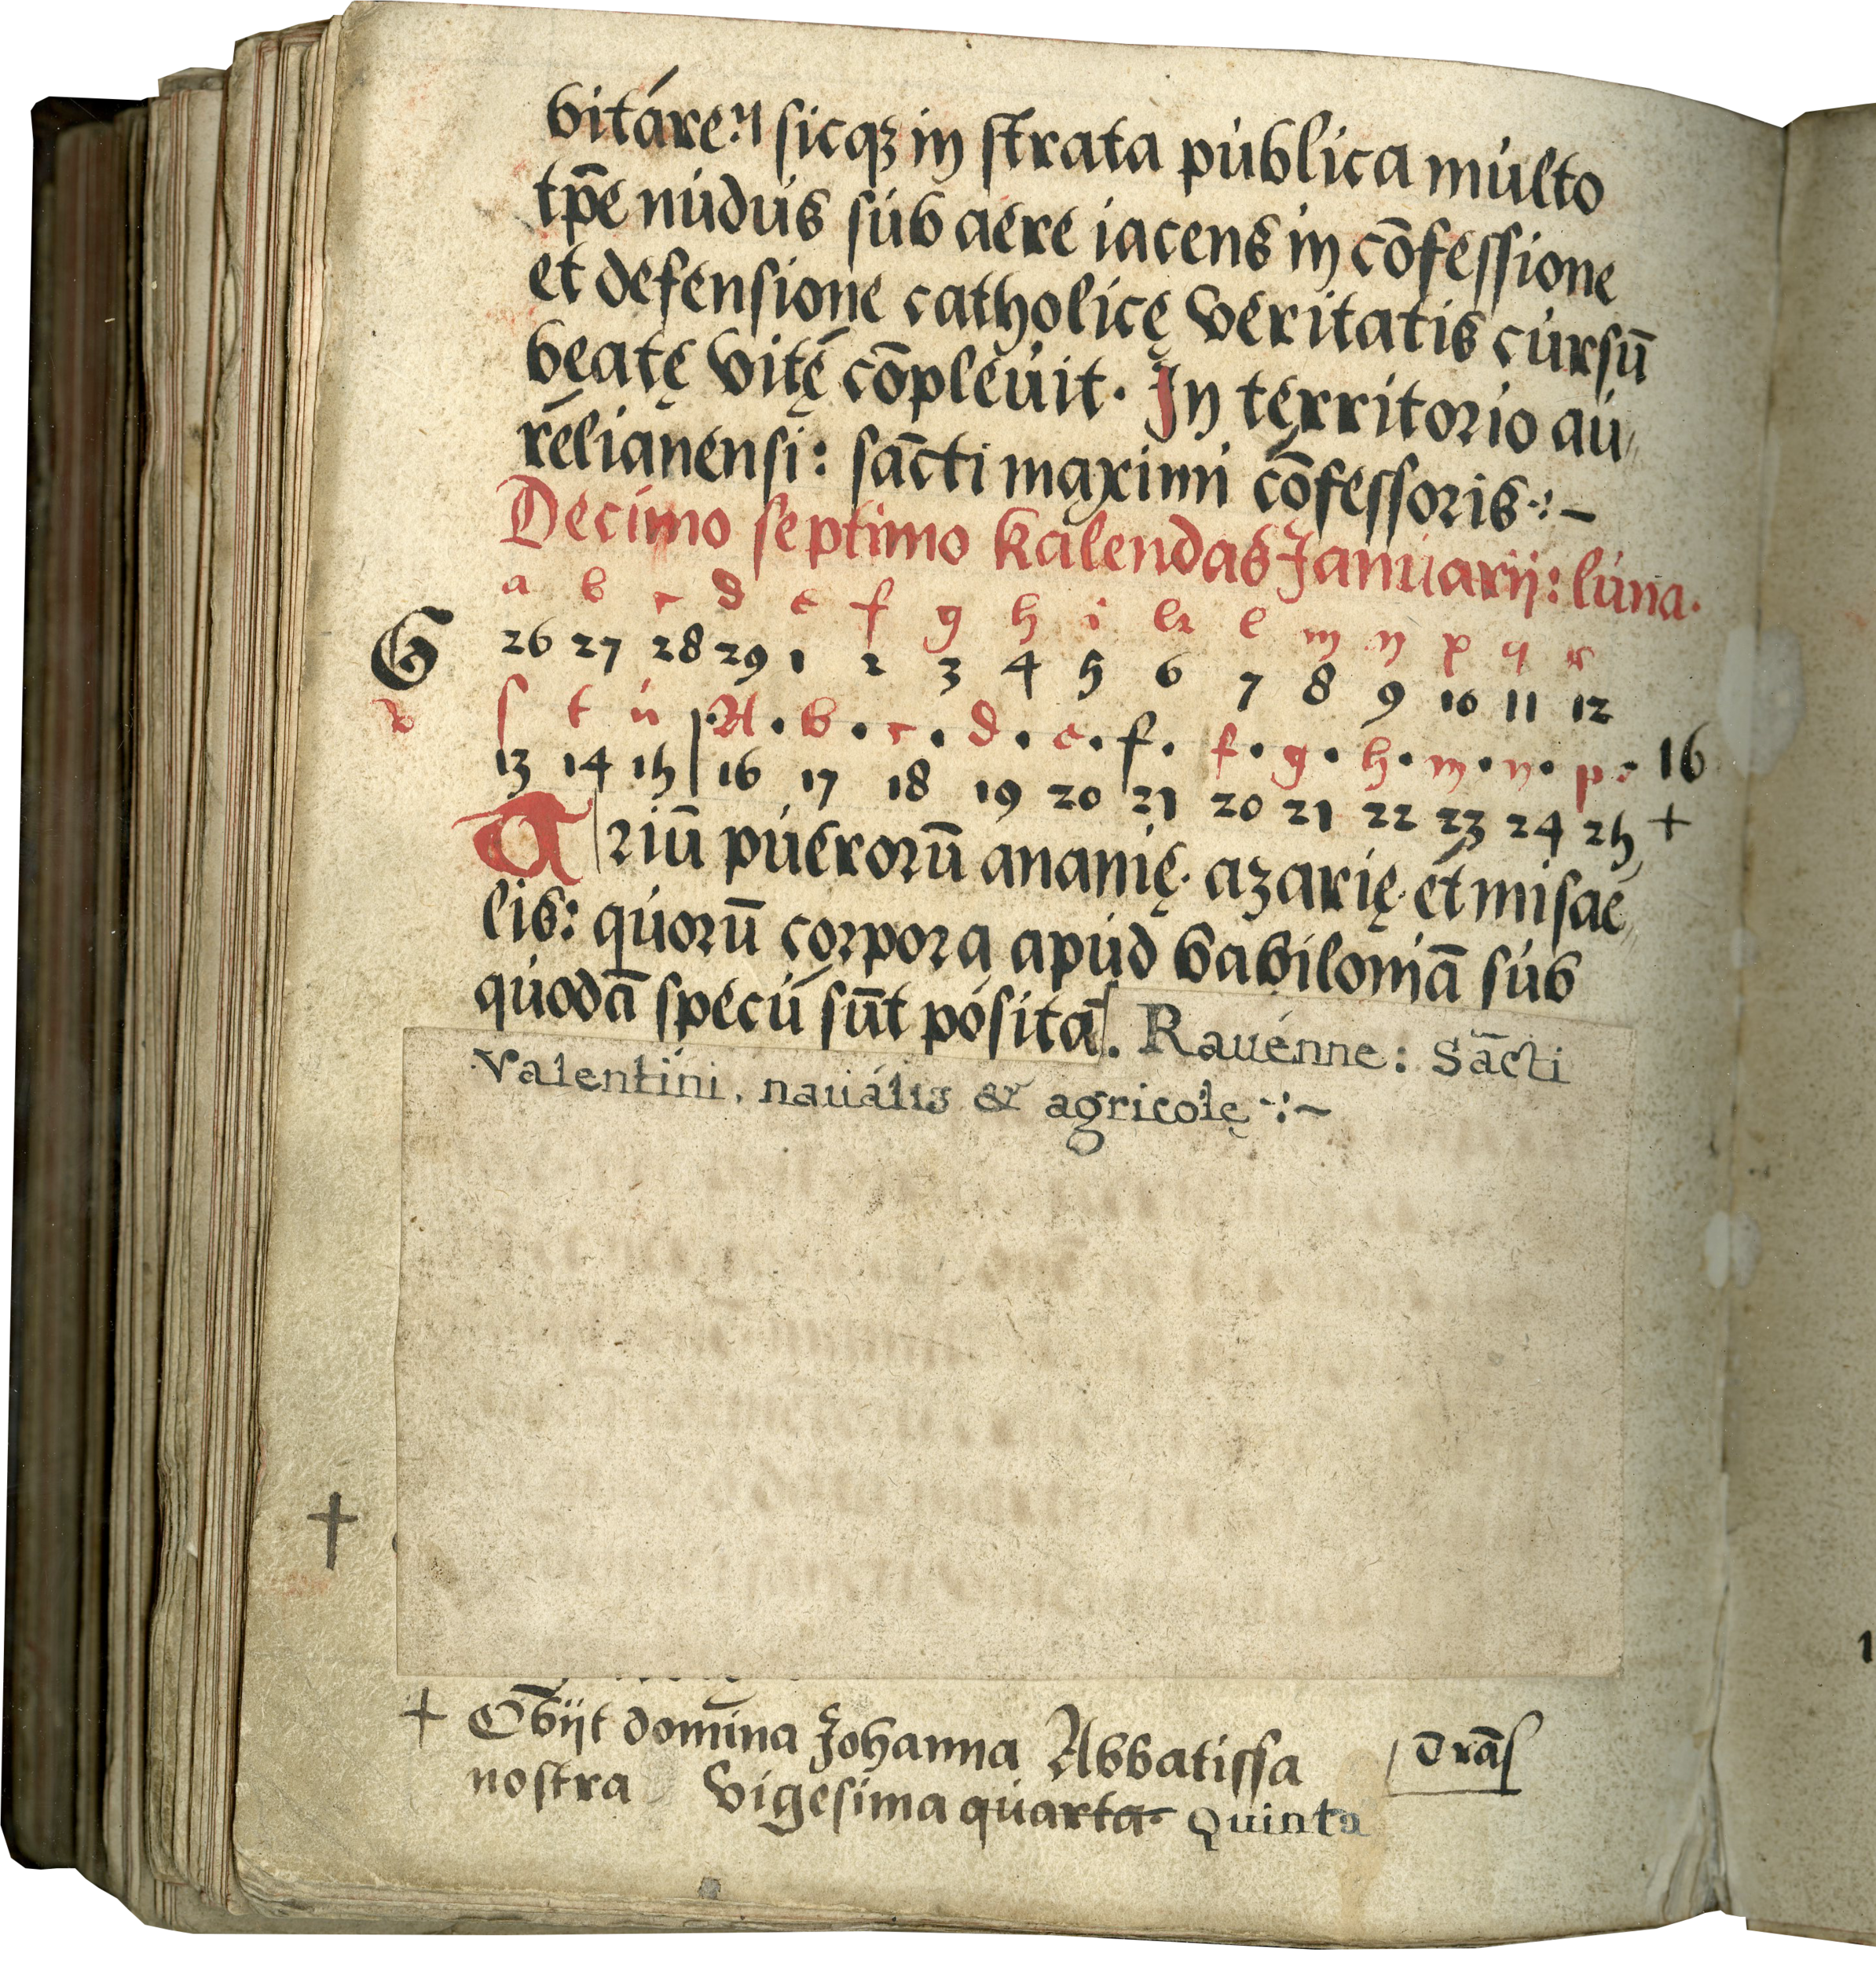 bitáreꝫ sicqꝫ in strata publica multo
tp̄e nudus sub aere iacens in cōfessione
et defensione catholicę veritatis cursū
beatę vitę cōpleuit. In territorio au
relianensi: sācti maximi cōfessoris
Decimo septimo kalendas Januarij: luna.
a b c d e f g h i k l m n p q r
G 26 27 28 29 1 2 3 4 5 6 7 8 9 10 11 12
s t u A . b . c . d . e . f . f . g . h . m . n . p . 16
13 14 15 16 17 18 19 20 21 20 21 22 23 24 25 +
Triū puerorū ananię. azarię. et misae
lis: quorū corpora apud babiloniā sub
quodā specu sūt pósita. Rauénne: Sācti
Valentini, nauális & agricolę
+
+ Obijt domina Johanna Abbatissa
nostra vigesima quarta. Quinta